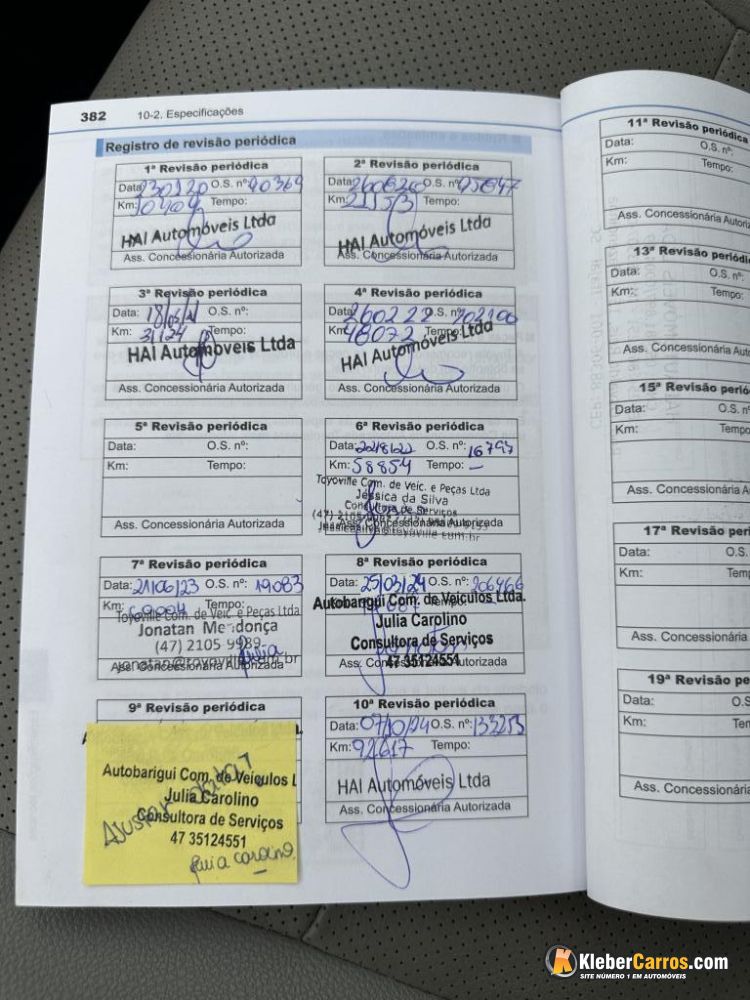 382 10-2. Especificações
Registro de revisão periódica
1ª Revisão periódica
Data: 230120 O.S. nº: 90369
Km: 10404 Tempo:
HAI Automóveis Ltda
Ass. Concessionária Autorizada
2ª Revisão periódica
Data: O.S. nº:
Km: 21153 Tempo:
HAI Automóveis Ltda
Ass. Concessionária Autorizada
3ª Revisão periódica
Data: O.S. nº:
Km: 31124 Tempo:
HAI Automóveis Ltda
Ass. Concessionária Autorizada
4ª Revisão periódica
Data: 260222 O.S. nº: 102100
Km: 48072 Tempo:
HAI Automóveis Ltda
Ass. Concessionária Autorizada
5ª Revisão periódica
Data: O.S. nº:
Km: Tempo:
Ass. Concessionária Autorizada
6ª Revisão periódica
Data: O.S. nº: 16797
Km: 58854 Tempo: —
Toyoville Com. de Veic. e Peças Ltda
Jéssica da Silva
Consultora de Serviços
(47) 2105
Ass. Concessionária Autorizada
7ª Revisão periódica
Data: 21/06/23 O.S. nº: 19083
Km: Tempo:
Toyoville Com. de Veic. e Peças Ltda
Jonatan Mendonça
(47) 2105 9989
jonatan@toyoville.com.br
Julia
Ass. Concessionária Autorizada
8ª Revisão periódica
Data: 25/03/24 O.S. nº: 206466
Km: Tempo:
Autobarigui Com. de Veiculos Ltda.
Julia Carolino
Consultora de Serviços
47 35124551
Ass. Concessionária Autorizada
9ª Revisão periódica
Autobarigui Com. de Veiculos L
Julia Carolino
Consultora de Serviços
47 35124551
Julia Carolino.
10ª Revisão periódica
Data: 07/10/24 O.S. nº: 133253
Km: 92617 Tempo:
HAI Automóveis Ltda
Ass. Concessionária Autorizada
11ª Revisão periódica
Data: O.S. nº:
Km: Tempo:
Ass. Concessionária Autoriz
13ª Revisão periódi
Data: O.S. nº:
Km: Tempo:
Ass. Concessionária Aut
15ª Revisão periód
Data: O.S. nº:
Km: Tempo:
Ass. Concessionária A
17ª Revisão per
Data: O.S.
Km: Tem
Ass. Concessionária
19ª Revisão pe
Data: O.S
Km: Ten
Ass. Concessionári
KleberCarros.com
SITE NÚMERO 1 EM AUTOMÓVEIS